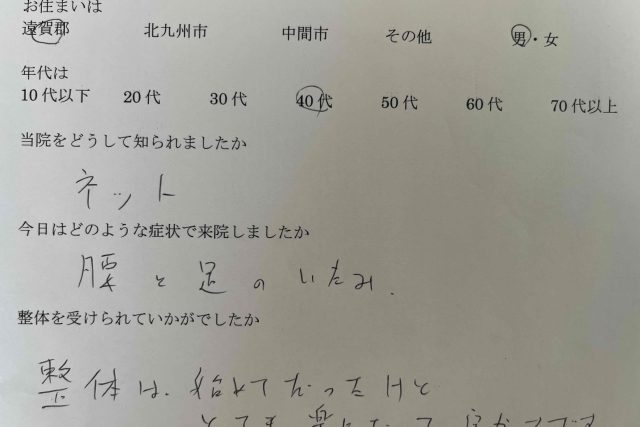 お住まいは
遠賀郡 北九州市 中間市 その他 男・女
年代は
10代以下 20代 30代 40代 50代 60代 70代以上
当院をどうして知られましたか
ネット
今日はどのような症状で来院しましたか
腰と足のいたみ.
整体を受けられていかがでしたか
整体は、始めてだったけど
とても楽になって良かったです